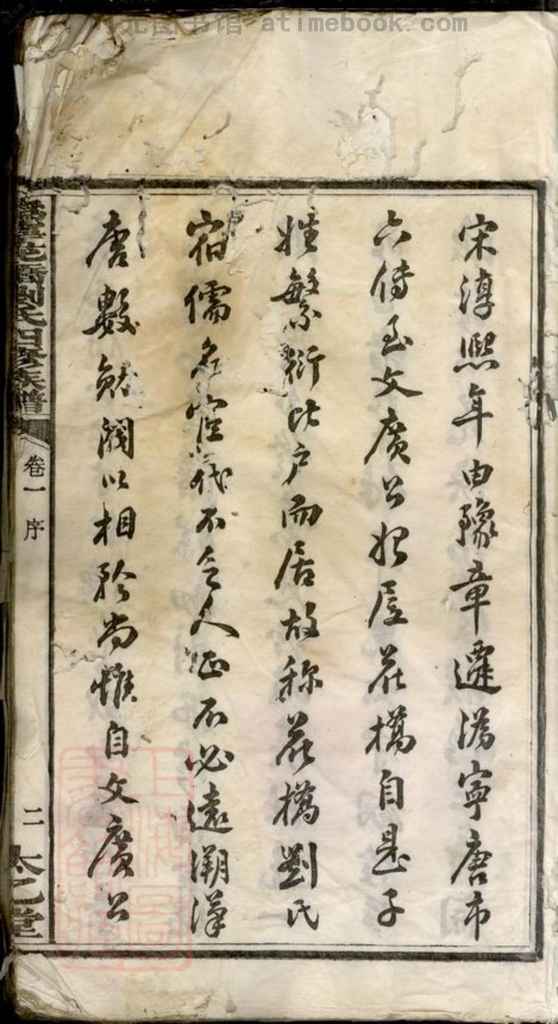 宋淳熙年由豫章遷溈寧唐市
六傳至文廣公始居花橋自是子
姓繁衍比戶而居故称花橋劉氏
宿儒名宦代不乏人正不必遠溯漢
唐數
閥以相矜尚惟自文廣公
花橋劉氏四修族譜
卷一 序
二
太乙堂
atimebook.com